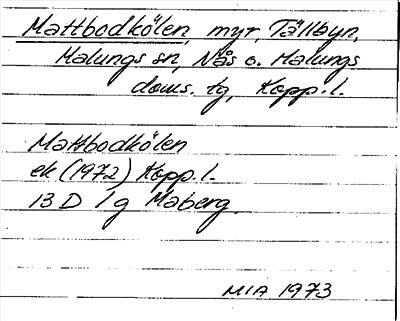 Mattbodkölen, myr, Tällbyn,
Malungs sn, Nås o. Malungs
doms. tg, Kopp. l.
Mattbodkölen
ek (1972) Kopp. l.
13 D 1 g Maberg
MIA 1973